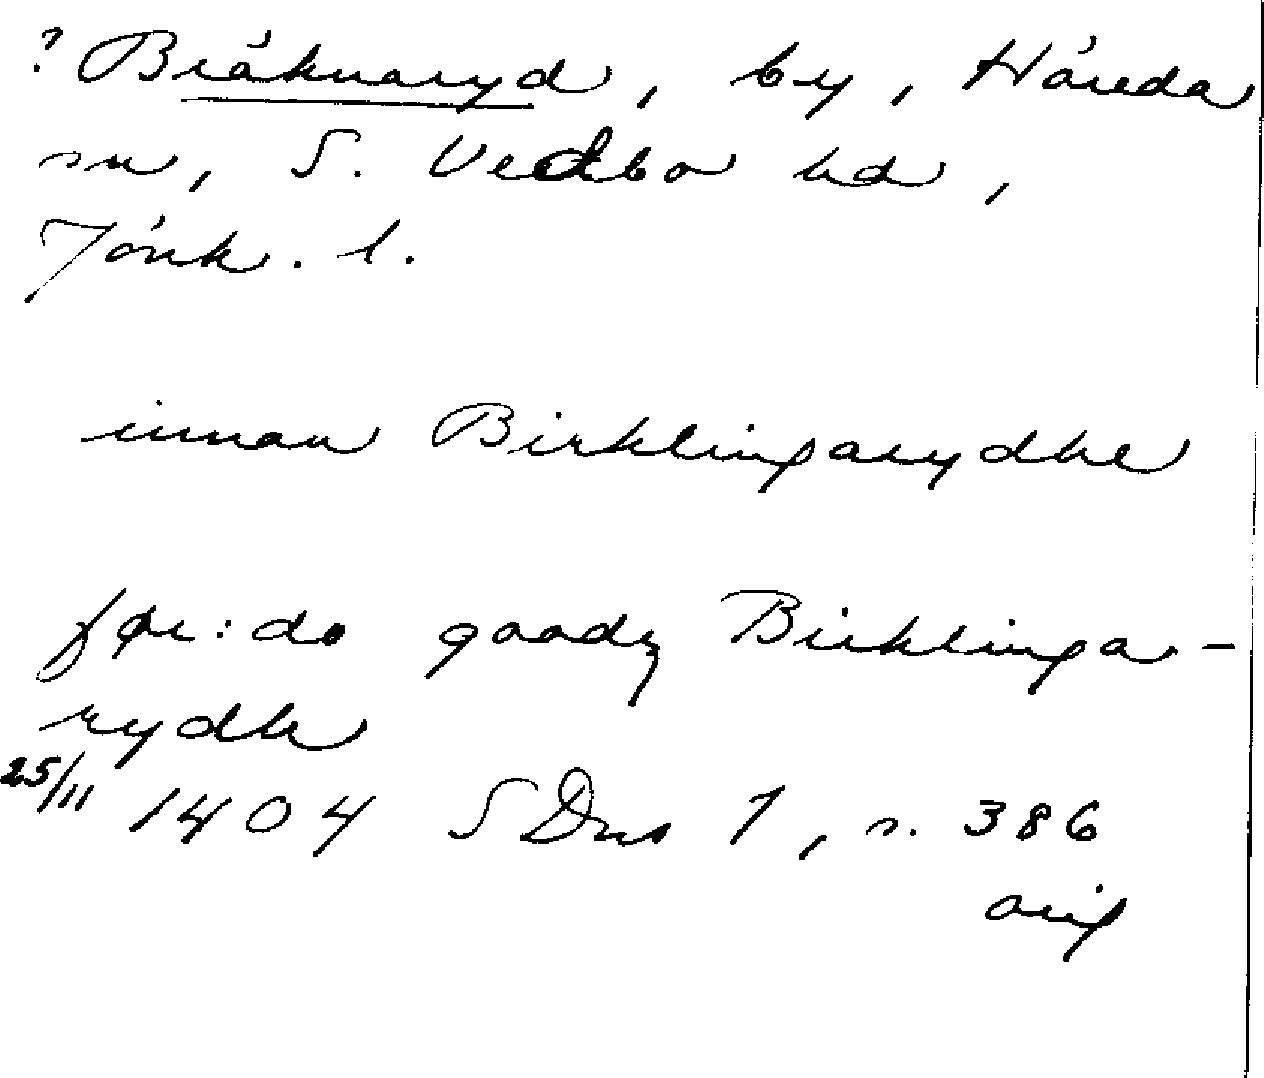 ? Bräknaryd, by, Höreda
sn, S. Vedbo hd,
Jönk. l.
innan Birklingarydhe
før:do goodz Birklinga-
rydh
25/11 1404 SDns 1, s. 386
orig